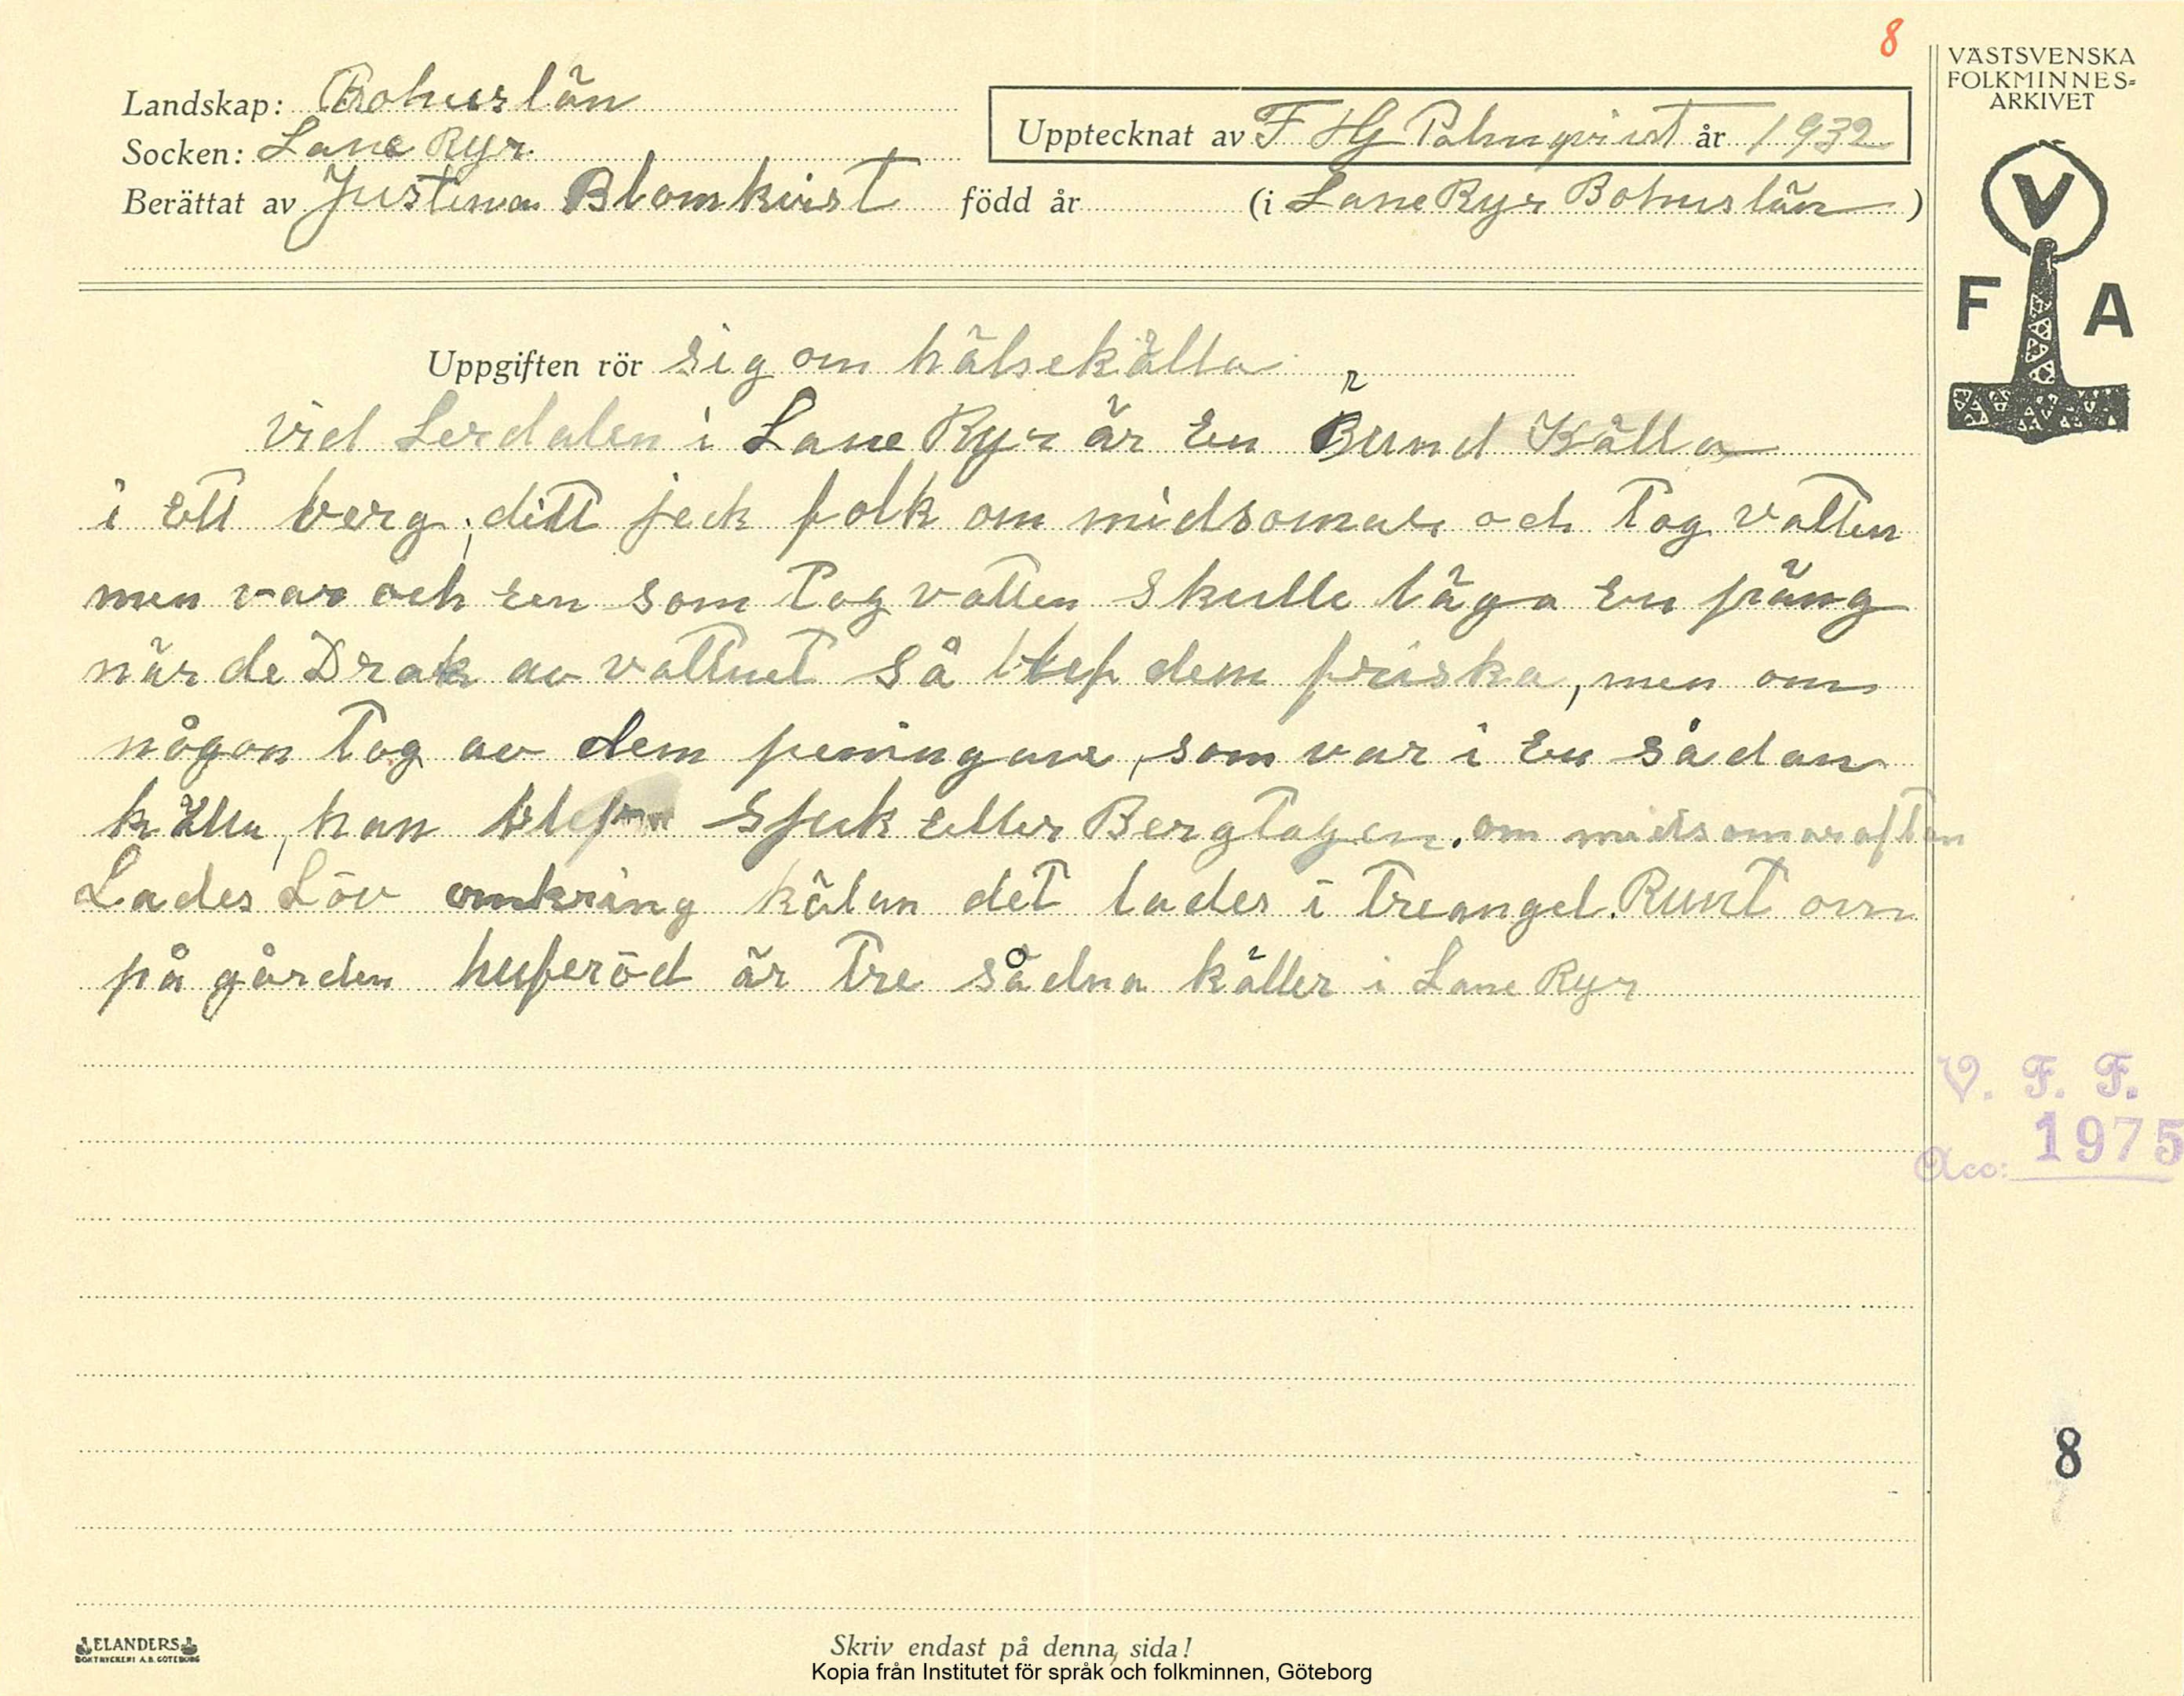 8
VÄSTSVENSKA
FOLKMINNES=
ARKIVET
Landskap: Bohuslän
Socken: Lane Ryr
Upptecknat av F Hj Palmqvist år 1932
Berättat av Justina Blomkvist född år (i Lane Ryr Bohuslän)
V
F A
Uppgiften rör sig om hälsekälla
r
vid Lerdalen i Lane Ryr är En Bund Källa
i Ett berg; ditt jeck folk om midsomar och Tog vatten
men var och Een som Tog vatten skulle läga En päng
när de Drak av vattnet så blef dem friska, men om
någon Tog av dem peningare, som var i En sådan
källa, han blef Sjuk Eller Bergtagen. om midsomarafton
Lades Löv omkring kälan det lades i Treangel. Runt om
på gården huferöd är Tre sådna käller i Lane Ryr
V. F. F.
Acc: 1975
8
ELANDERS
BOKTRYCKERI A.B. GÖTEBORG
Skriv endast på denna sida!
Kopia från Institutet för språk och folkminnen, Göteborg